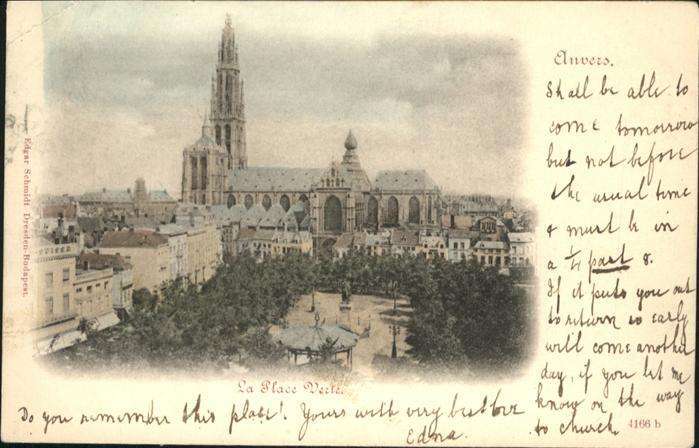 Anvers.
Shall be able to
come tomorrow
but not before
the usual time
& must be in
a ¼ past 8.
If it puts you out
to return so early
will come another
day, if you let me
know on the way
to church
4166 b
La Place Verte.
Do you remember this place! Yours with very best love
Edna.
Edgar Schmidt, Dresden-Budapest.